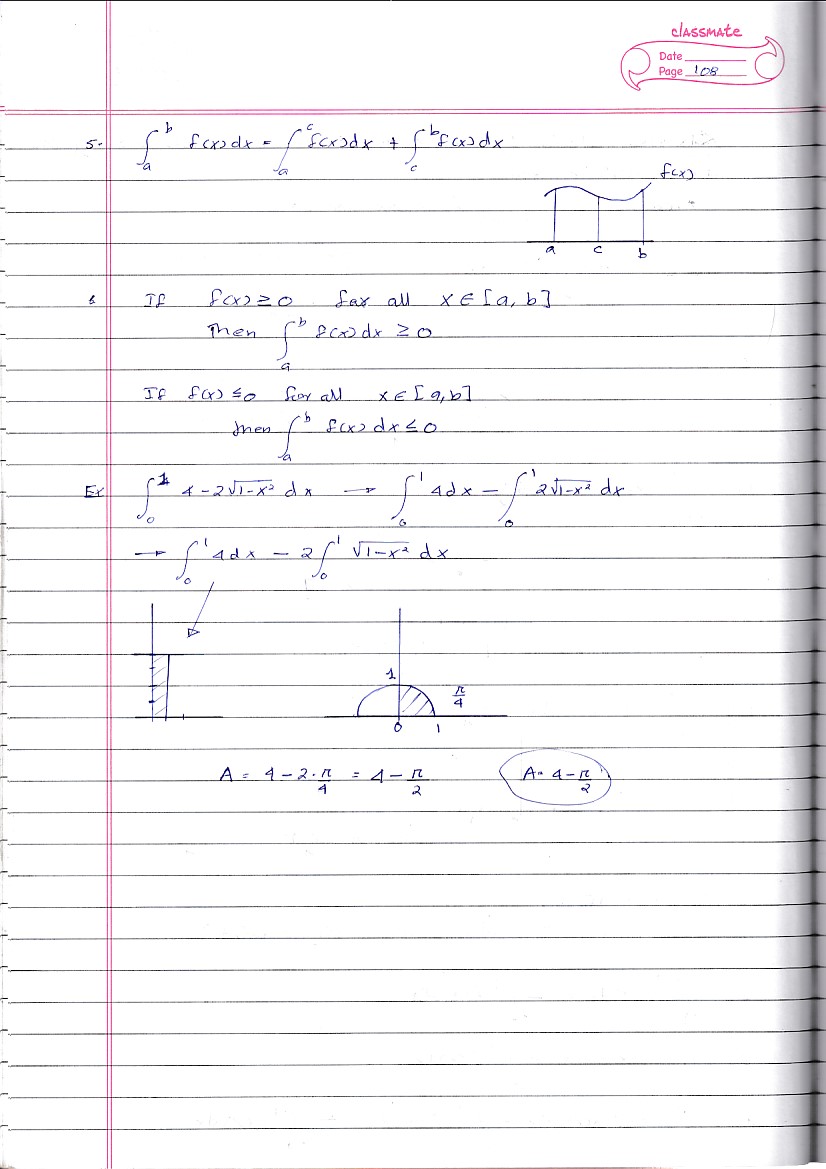 classmate
Date
Page 108
5. ∫_a^b f(x)dx = ∫_a^c f(x)dx + ∫_c^b f(x)dx
f(x)
a c b
6 If f(x) ≥ 0 for all x ∈ [a, b]
Then ∫_a^b f(x)dx ≥ 0
If f(x) ≤ 0 for all x ∈ [a, b]
then ∫_a^b f(x) dx ≤ 0
Ex ∫_0^1 4 - 2√(1-x²) dx → ∫_0^1 4dx - ∫_0^1 2√(1-x²) dx
→ ∫_0^1 4dx - 2∫_0^1 √(1-x²) dx
1 π/4
0 1
A = 4 - 2·π/4 = 4 - π/2 A = 4 - π/2